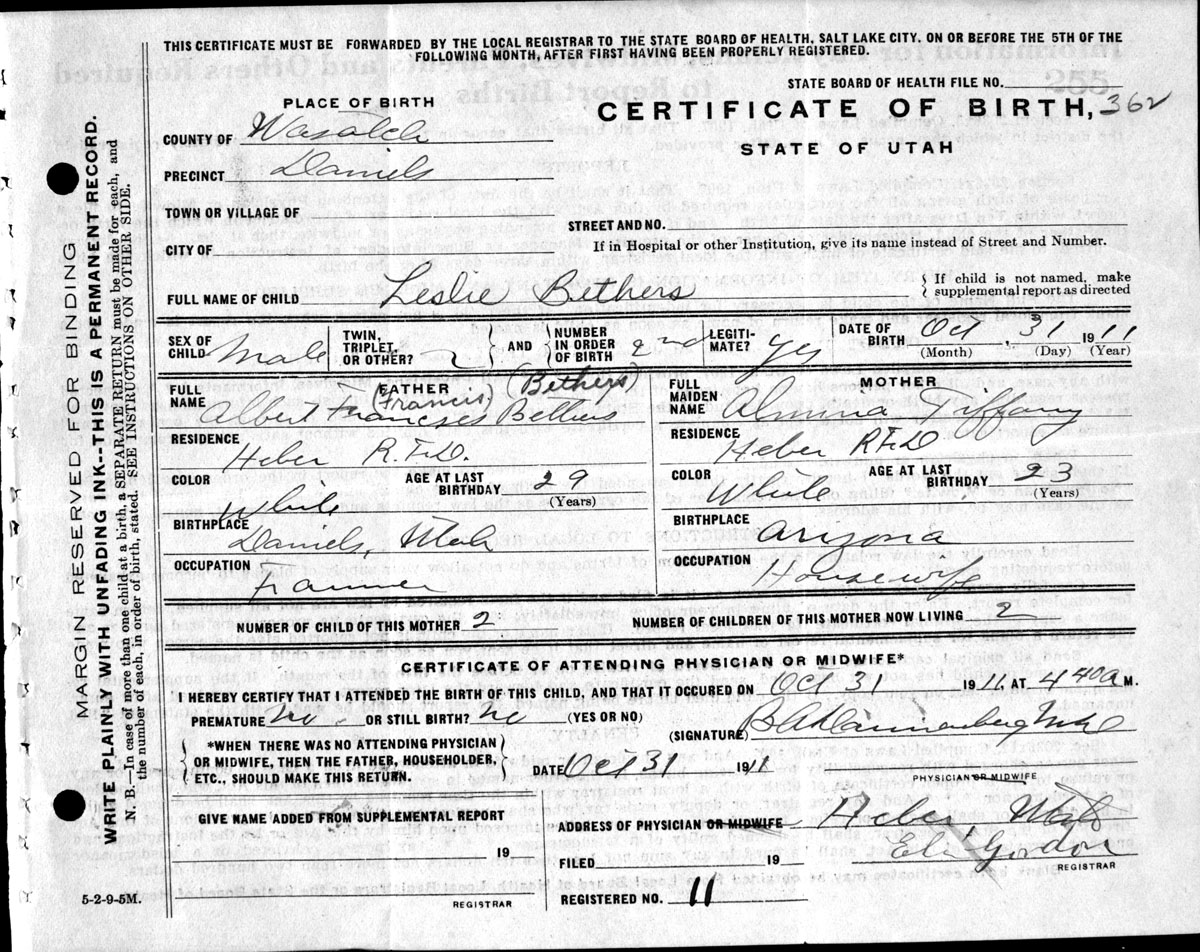 THIS CERTIFICATE MUST BE FORWARDED BY THE LOCAL REGISTRAR TO THE STATE BOARD OF HEALTH, SALT LAKE CITY, ON OR BEFORE THE 5TH OF THE
FOLLOWING MONTH, AFTER FIRST HAVING BEEN PROPERLY REGISTERED.
STATE BOARD OF HEALTH FILE NO.
PLACE OF BIRTH
CERTIFICATE OF BIRTH, 362
STATE OF UTAH
COUNTY OF Wasatch
PRECINCT Daniels
TOWN OR VILLAGE OF
STREET AND NO.
CITY OF
If in Hospital or other Institution, give its name instead of Street and Number.
FULL NAME OF CHILD Leslie Bethers
If child is not named, make
supplemental report as directed
SEX OF CHILD Male
TWIN, TRIPLET, OR OTHER?
AND NUMBER IN ORDER OF BIRTH 2nd
LEGITI- MATE? yes
DATE OF BIRTH Oct, 31 1911
(Month) (Day) (Year)
FATHER
(Francis) (Bethers)
FULL NAME Albert Francses Bethers
MOTHER
FULL MAIDEN NAME Almina Tiffany
RESIDENCE Heber R.F.D.
RESIDENCE Heber R F D
COLOR White
AGE AT LAST BIRTHDAY 29
(Years)
COLOR White
AGE AT LAST BIRTHDAY 23
(Years)
BIRTHPLACE Daniels, Utah
BIRTHPLACE Arizona
OCCUPATION Farmer
OCCUPATION Housewife
NUMBER OF CHILD OF THIS MOTHER 2
NUMBER OF CHILDREN OF THIS MOTHER NOW LIVING 2
CERTIFICATE OF ATTENDING PHYSICIAN OR MIDWIFE*
I HEREBY CERTIFY THAT I ATTENDED THE BIRTH OF THIS CHILD, AND THAT IT OCCURED ON Oct 31 1911, AT 4 40 a M.
PREMATURE no. OR STILL BIRTH? no (YES OR NO)
(SIGNATURE)
*WHEN THERE WAS NO ATTENDING PHYSICIAN
OR MIDWIFE, THEN THE FATHER, HOUSEHOLDER,
ETC., SHOULD MAKE THIS RETURN.
DATE Oct 31 1911
PHYSICIAN OR MIDWIFE
GIVE NAME ADDED FROM SUPPLEMENTAL REPORT
19
REGISTRAR
ADDRESS OF PHYSICIAN OR MIDWIFE Heber Utah
FILED 19
Gordon
REGISTRAR
REGISTERED NO. 11
5-2-9-5M.
MARGIN RESERVED FOR BINDING
WRITE PLAINLY WITH UNFADING INK--THIS IS A PERMANENT RECORD.
N. B.—In case of more than one child at a birth, a SEPARATE RETURN must be made for each, and
the number of each, in order of birth, stated. SEE INSTRUCTIONS ON OTHER SIDE.